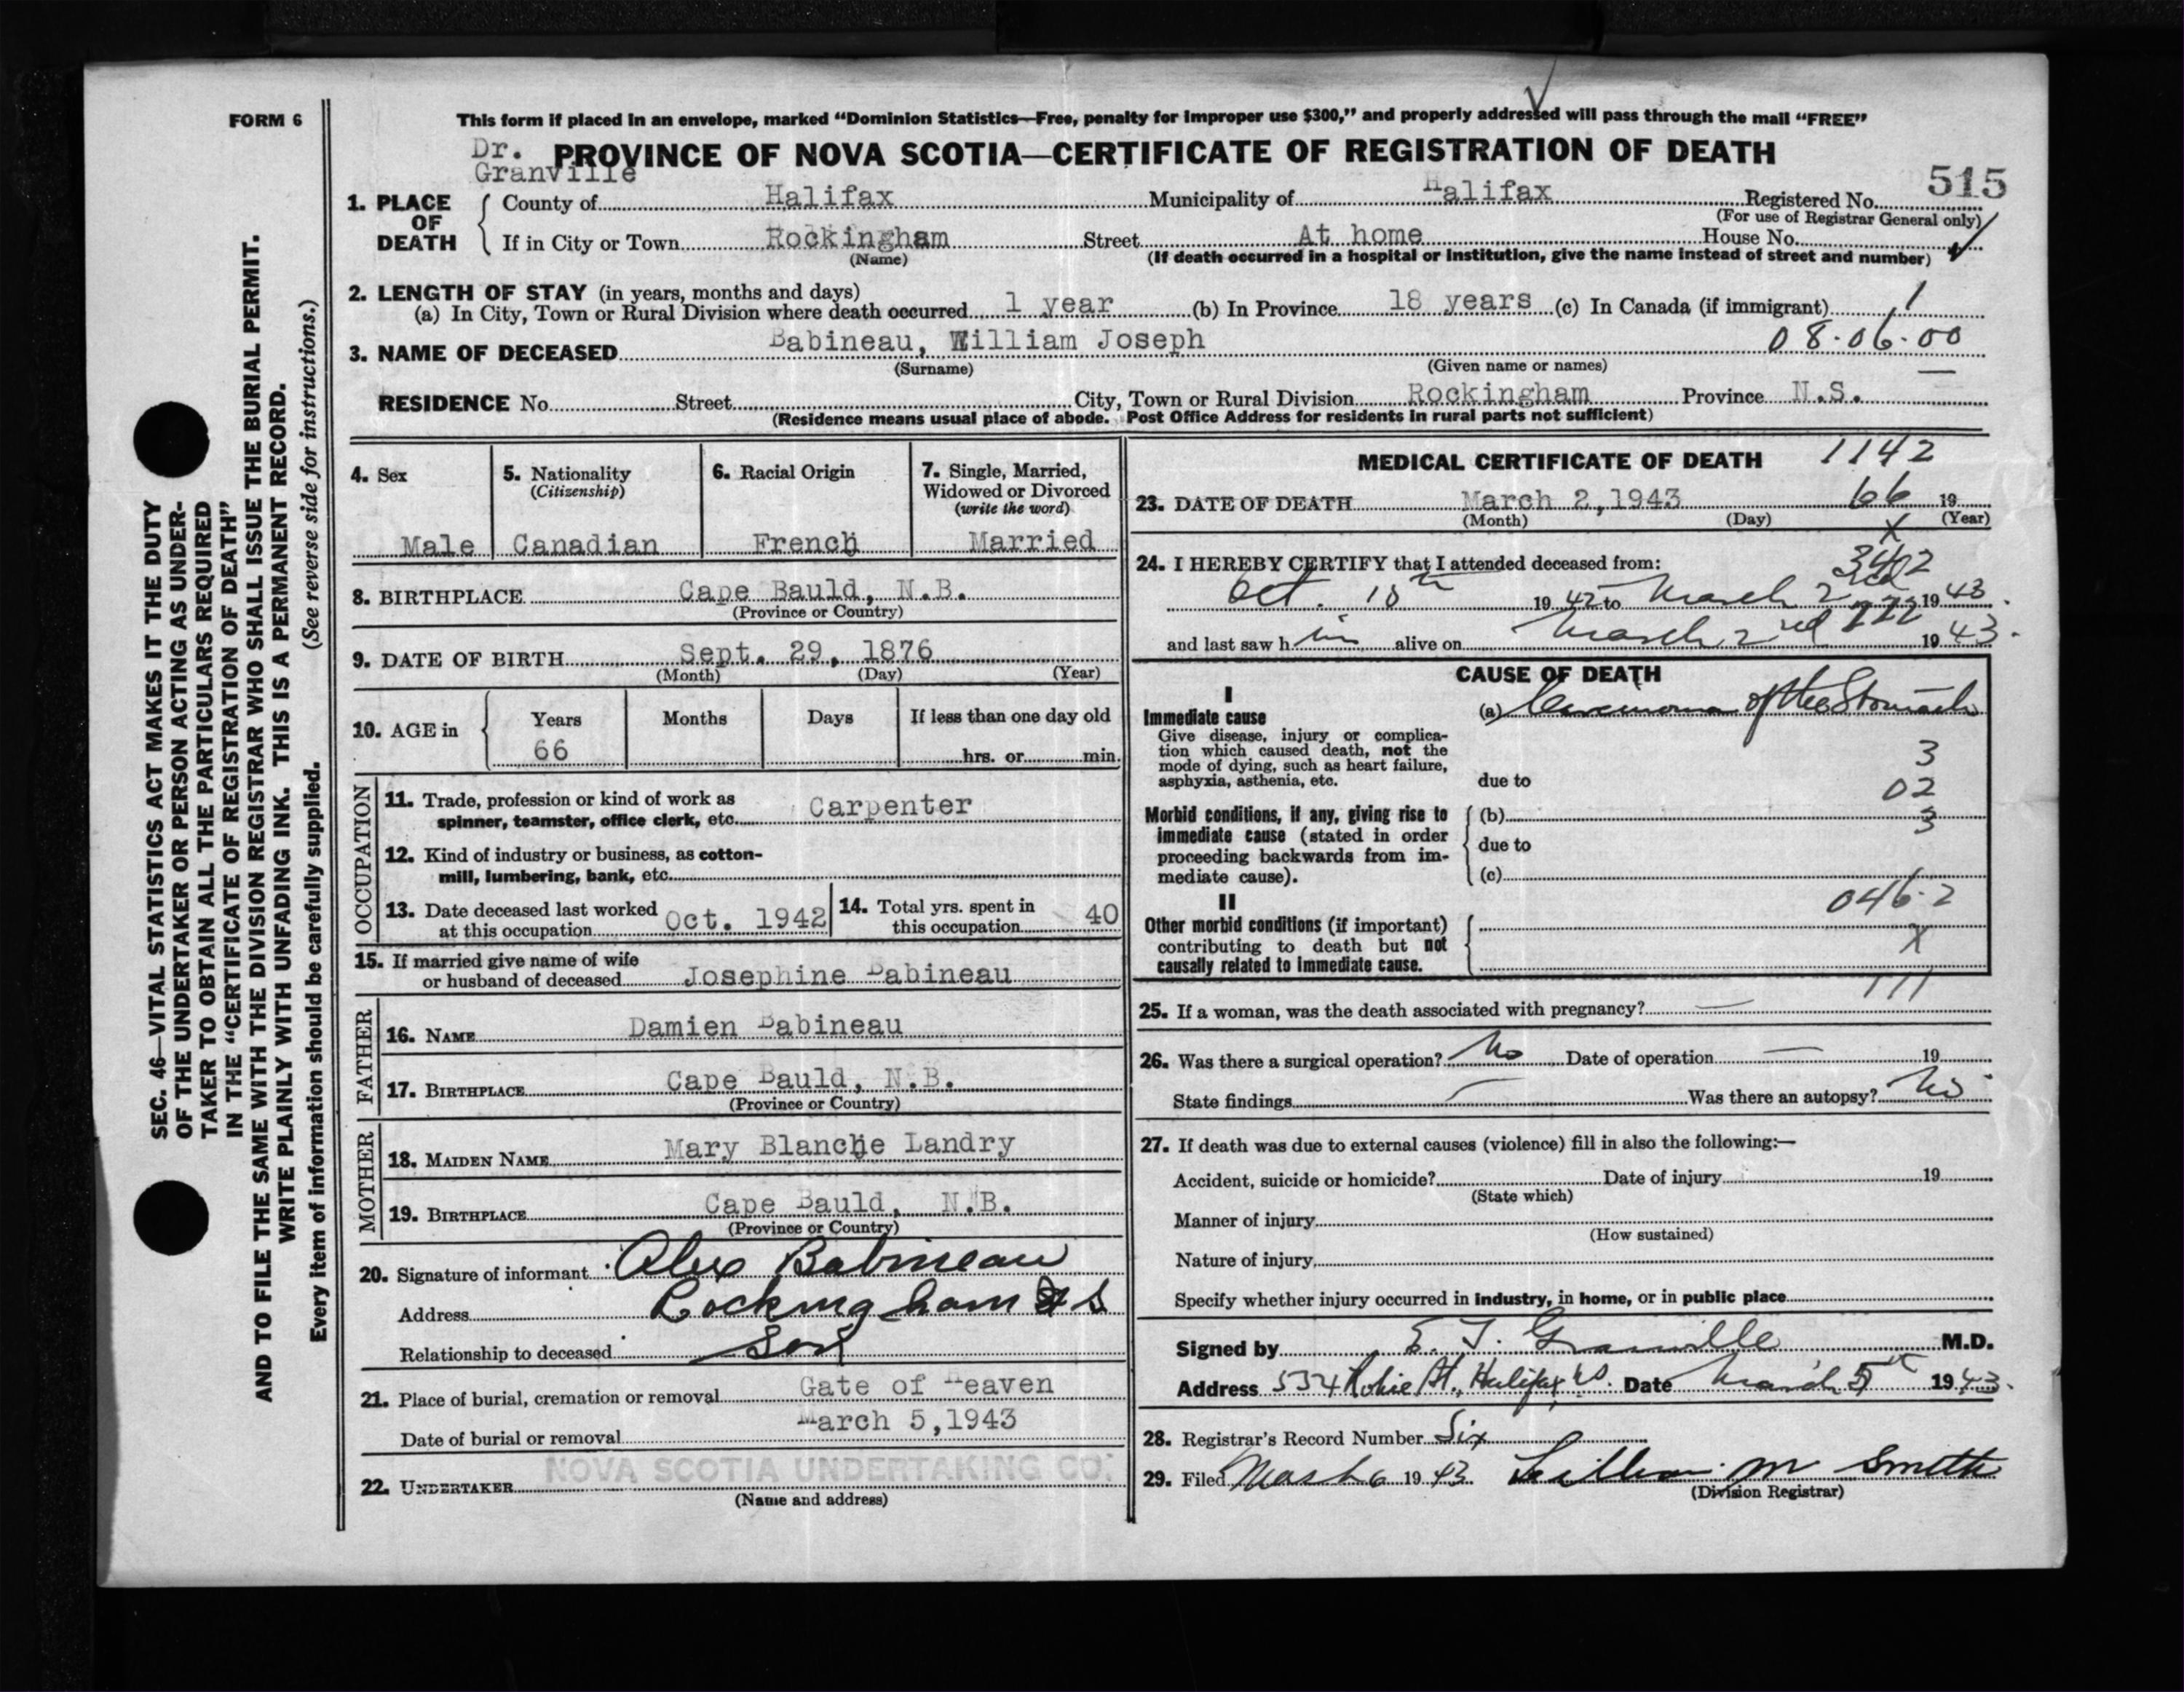 FORM 6
This form if placed in an envelope, marked "Dominion Statistics—Free, penalty for improper use $300," and properly addressed will pass through the mail "FREE"
Dr.
Granville
PROVINCE OF NOVA SCOTIA—CERTIFICATE OF REGISTRATION OF DEATH
515
1. PLACE OF DEATH
County of Halifax Municipality of Halifax Registered No.
(For use of Registrar General only)
If in City or Town Rockingham Street At home House No.
(Name) (If death occurred in a hospital or institution, give the name instead of street and number)
2. LENGTH OF STAY (in years, months and days)
(a) In City, Town or Rural Division where death occurred 1 year (b) In Province 18 years (c) In Canada (if immigrant) 1
3. NAME OF DECEASED Babineau, William Joseph 08.06.00
(Surname) (Given name or names)
RESIDENCE No. Street City, Town or Rural Division Rockingham Province N.S.
(Residence means usual place of abode. Post Office Address for residents in rural parts not sufficient)
SEC. 46—VITAL STATISTICS ACT MAKES IT THE DUTY
OF THE UNDERTAKER OR PERSON ACTING AS UNDER-
TAKER TO OBTAIN ALL THE PARTICULARS REQUIRED
IN THE "CERTIFICATE OF REGISTRATION OF DEATH"
AND TO FILE THE SAME WITH THE DIVISION REGISTRAR WHO SHALL ISSUE THE BURIAL PERMIT.
WRITE PLAINLY WITH UNFADING INK. THIS IS A PERMANENT RECORD.
Every item of information should be carefully supplied. (See reverse side for instructions.)
4. Sex
Male
5. Nationality
(Citizenship)
Canadian
6. Racial Origin
French
7. Single, Married,
Widowed or Divorced
(write the word)
Married
8. BIRTHPLACE Cape Bauld, N.B.
(Province or Country)
9. DATE OF BIRTH Sept. 29, 1876
(Month) (Day) (Year)
10. AGE in Years Months Days If less than one day old
66 hrs. or min.
OCCUPATION
11. Trade, profession or kind of work as
spinner, teamster, office clerk, etc. Carpenter
12. Kind of industry or business, as cotton-
mill, lumbering, bank, etc.
13. Date deceased last worked
at this occupation Oct. 1942
14. Total yrs. spent in
this occupation 40
15. If married give name of wife
or husband of deceased Josephine Babineau
FATHER
16. NAME Damien Babineau
17. BIRTHPLACE Cape Bauld, N.B.
(Province or Country)
MOTHER
18. MAIDEN NAME Mary Blanche Landry
19. BIRTHPLACE Cape Bauld, N.B.
(Province or Country)
20. Signature of informant Alex Babineau
Address Rockingham N S
Relationship to deceased Son
21. Place of burial, cremation or removal Gate of Heaven
Date of burial or removal March 5,1943
22. UNDERTAKER NOVA SCOTIA UNDERTAKING CO.
(Name and address)
MEDICAL CERTIFICATE OF DEATH 1142
23. DATE OF DEATH March 2,1943 66 19
(Month) (Day) (Year)
X
24. I HEREBY CERTIFY that I attended deceased from: 3402
Oct. 10th 1942 to March 2nd 1943.
and last saw him alive on March 2nd 1943.
CAUSE OF DEATH
I
Immediate cause
Give disease, injury or complica-
tion which caused death, not the
mode of dying, such as heart failure,
asphyxia, asthenia, etc.
(a) Carcinoma of the Stomach
3
due to
02
Morbid conditions, if any, giving rise to
immediate cause (stated in order
proceeding backwards from im-
mediate cause).
(b)
3
due to
(c)
II
046.2
Other morbid conditions (if important)
contributing to death but not
causally related to immediate cause.
X
111
25. If a woman, was the death associated with pregnancy? —
26. Was there a surgical operation? No Date of operation — 19
State findings — Was there an autopsy? No
27. If death was due to external causes (violence) fill in also the following:—
Accident, suicide or homicide? Date of injury 19
(State which)
Manner of injury
(How sustained)
Nature of injury
Specify whether injury occurred in industry, in home, or in public place
Signed by E. T. Granville M.D.
Address 534 Robie St., Halifax N.S. Date March 5th 1943.
28. Registrar's Record Number Six
29. Filed March 6 1943. Lillian M Smith
(Division Registrar)